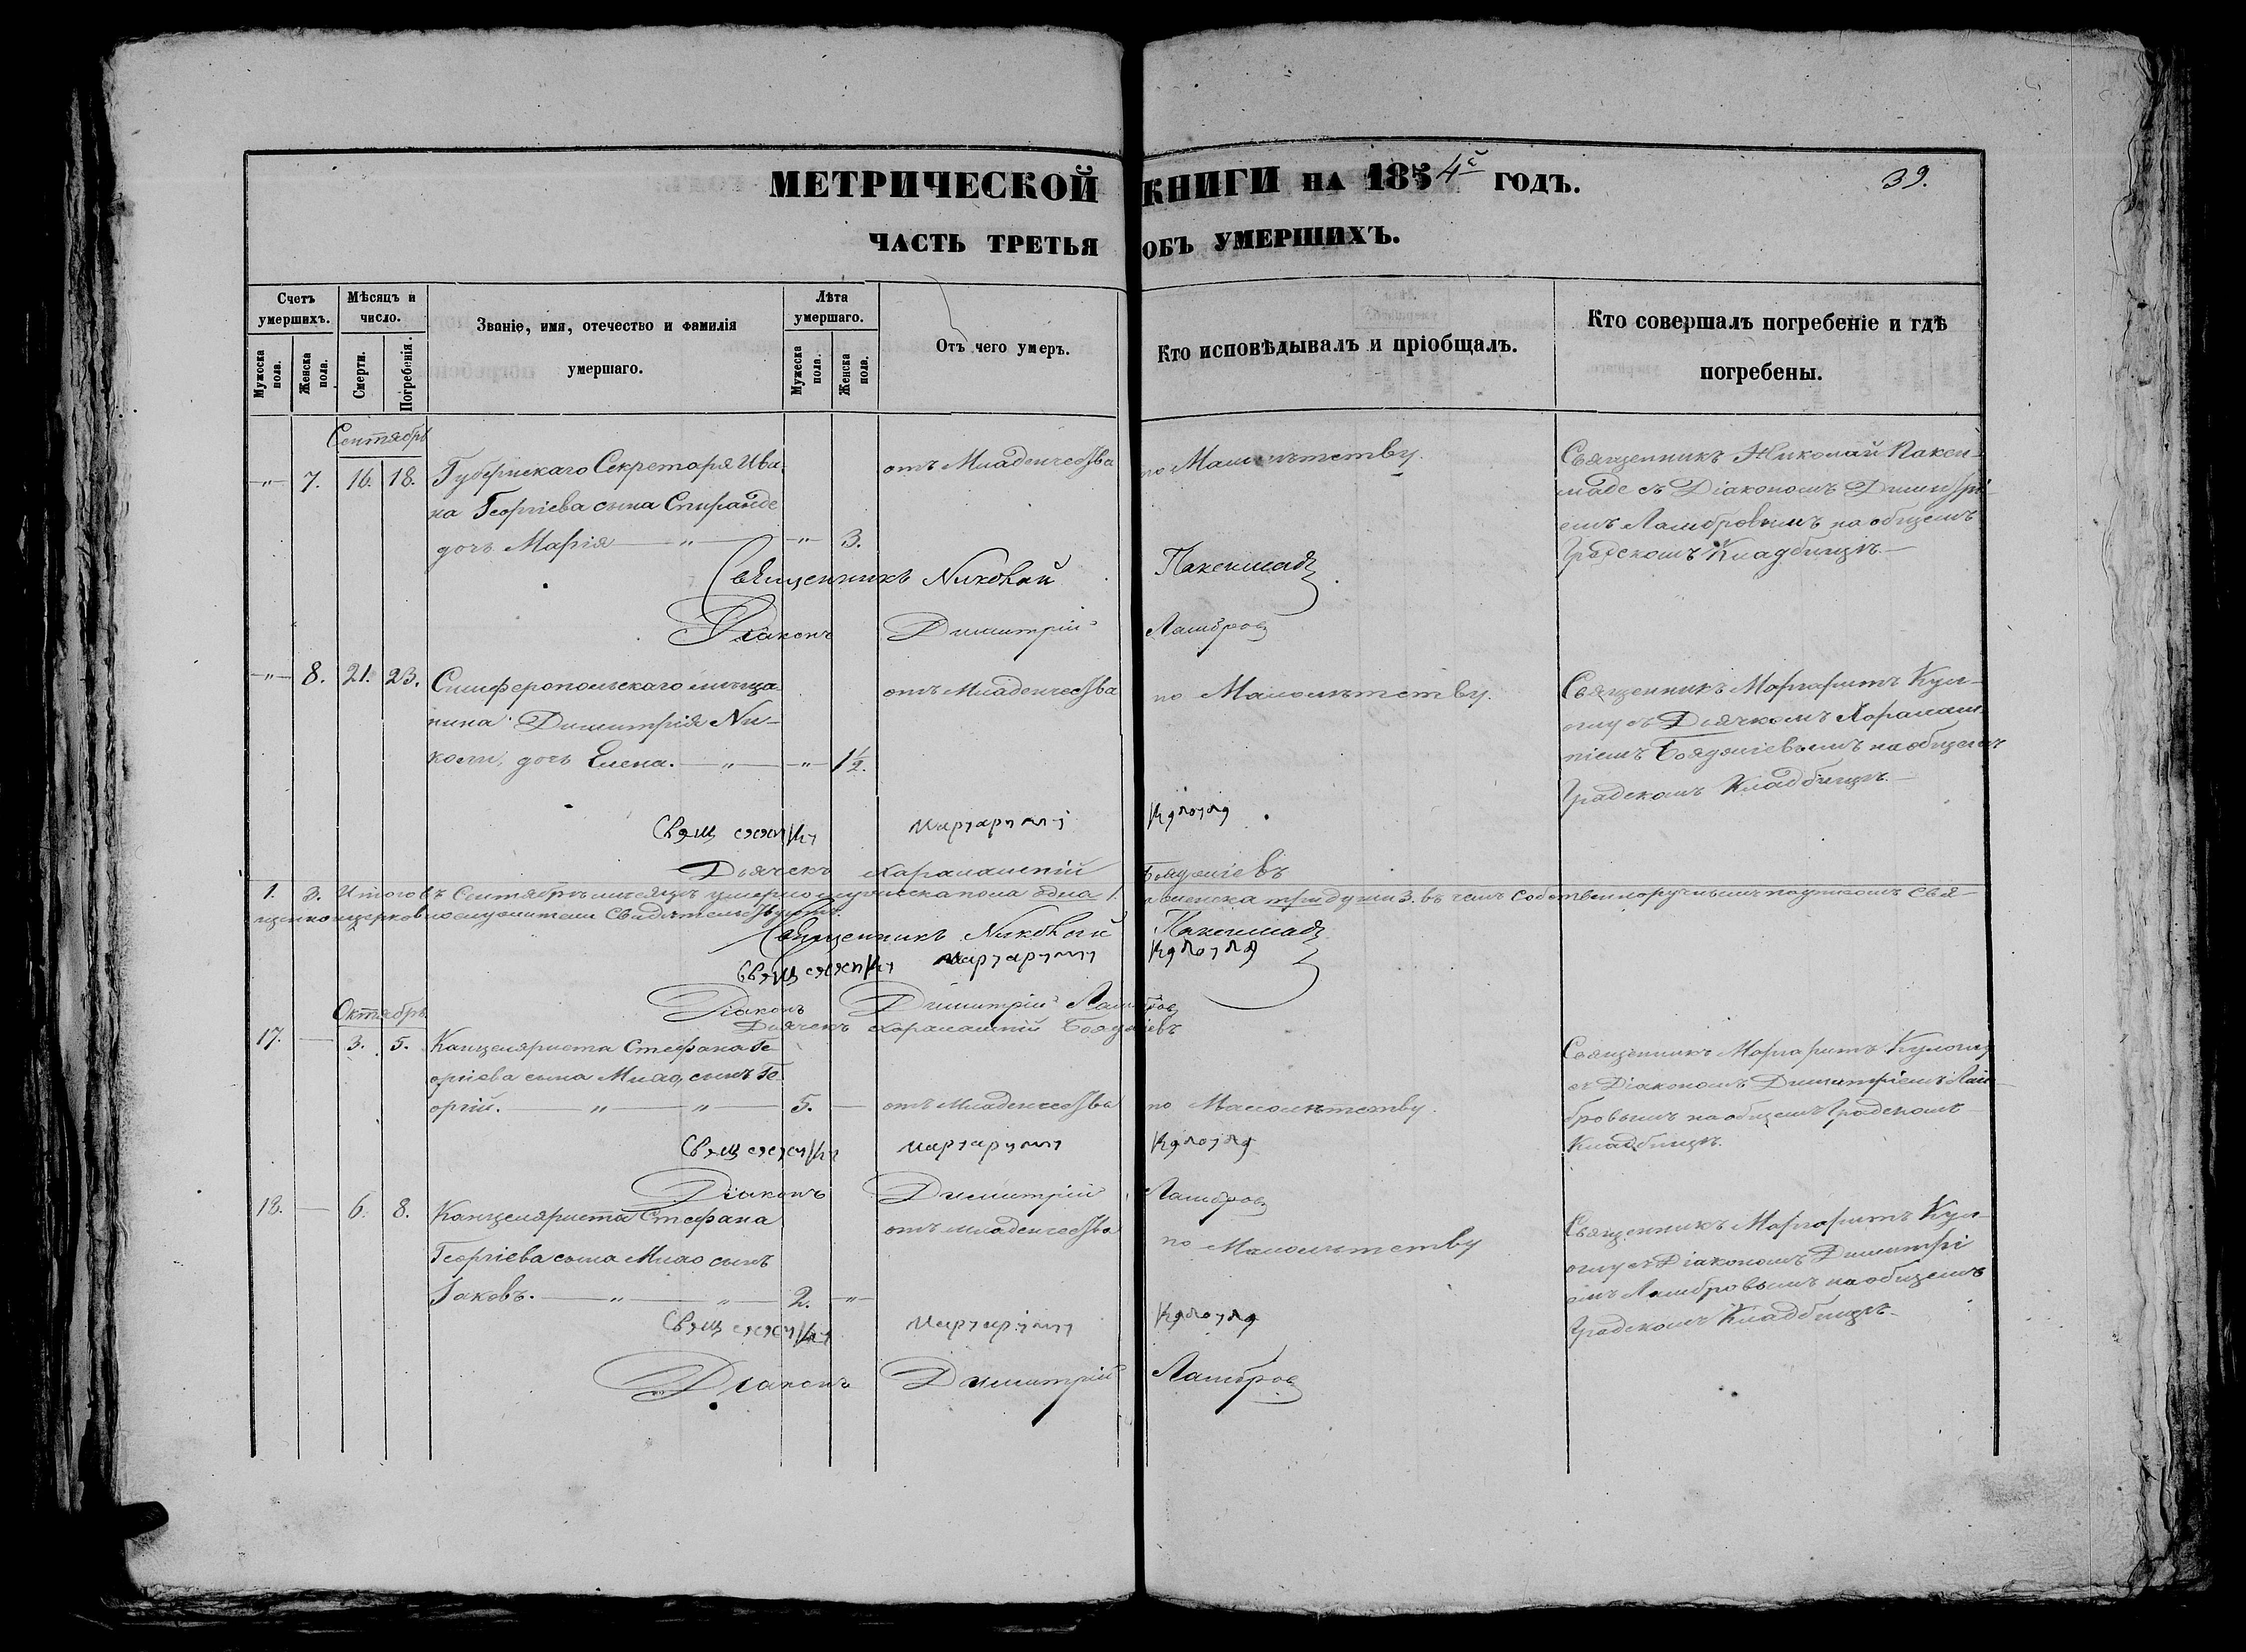 МЕТРИЧЕСКОЙ КНИГИ НА 1854й ГОДЪ.
39.
ЧАСТЬ ТРЕТЬЯ ОБЪ УМЕРШИХЪ.
Счетъ умершихъ.
Мужеска пола.
Женска пола.
Мѣсяцъ и число.
Смерти.
Погребенія.
Званіе, имя, отечество и фамилія
умершаго.
Лѣта умершаго.
Мужеска пола.
Женска пола.
Отъ чего умеръ.
Кто исповѣдывалъ и пріобщалъ.
Кто совершалъ погребеніе и гдѣ
погребены.
Сентябрь
-"- 7. 16. 18. Губернскаго Секретаря Ива
на Георгіева сына Спиранде
дочь Марія -"- -"- 3.
отъ Младенчества
по Малолѣтству.
Священникъ Николай Пакси-
маде съ Діакономъ Димитрі-
емъ Ламбровымъ на общемъ
Градскомъ Кладбищѣ.-
Священникъ Николай Паксимадъ
Діаконъ Димитрій Ламбровъ
-"- 8. 21. 23. Симферопольскаго мѣща-
нина Димитрія Ни-
коли, дочь Елена. -"- -"- 1½.
отъ Младенчества
по Малолѣтству.
Священникъ Маргаритъ Кул-
оглу съ Дьячкомъ Харалам-
піемъ Бояджіевымъ на общемъ
Градскомъ Кладбищѣ.-
Дьячекъ Харалампій Бояджіевъ
1. 3. Итого въ Сентябрѣ мѣсяцѣ умерло мужеска пола одна 1. женска три души 3. въ чемъ собственноручнымъ подписомъ свя-
щенноцерковнослужители Свидѣтельствуютъ.
Священникъ Николай Паксимадъ
Діаконъ Димитрій Ламбровъ
Дьячекъ Харалампій Бояджіевъ
Октябрь
17. — 3. 5. Канцеляриста Стефана Ге-
оргіева сына Милао, сынъ Ге-
оргій. -"- -"- 5. —
отъ Младенчества
по Малолѣтству.
Священникъ Маргаритъ Кулоглу
съ Діакономъ Димитріемъ Лам-
бровымъ на общемъ Градскомъ
Кладбищѣ.
Діаконъ Димитрій Ламбровъ
18. — 6. 8. Канцеляриста Стефана
Георгіева сына Милао сынъ
Іаковъ. -"- -"- 2. -"-
отъ младенчества
по Малолѣтству
Священникъ Маргаритъ Кул-
оглу съ Діакономъ Димитрі
емъ Ламбровымъ на общемъ
Градскомъ Кладбищѣ-
Діаконъ Димитрій Ламбровъ